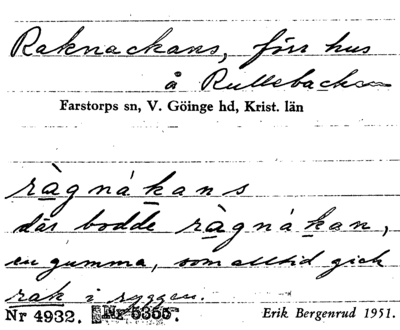 Raknackans, förr hus
å Rullebacken
Farstorps sn, V. Göinge hd, Krist. län
ràgnákans
där bodde ràgnákan,
en gumma, som alltid gick
rak i ryggen.
Nr 4932. Nr 5355. Erik Bergenrud 1951.